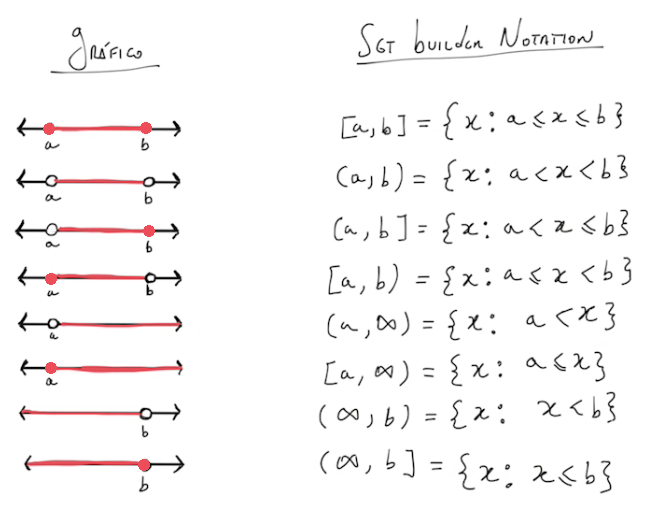 GRÁFICO SET builder NOTATION
a b [a,b] = {x: a ≤ x ≤ b}
a b (a,b) = {x: a < x < b}
a b (a,b] = {x: a < x ≤ b}
a b [a,b) = {x: a ≤ x < b}
a (a,∞) = {x: a < x}
a [a,∞) = {x: a ≤ x}
b (∞,b) = {x: x < b}
b (∞,b] = {x: x ≤ b}